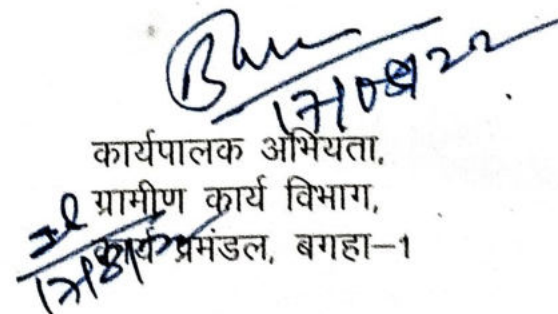 17/08/22
कार्यपालक अभियता,
ग्रामीण कार्य विभाग,
कार्य प्रमंडल, बगहा–1